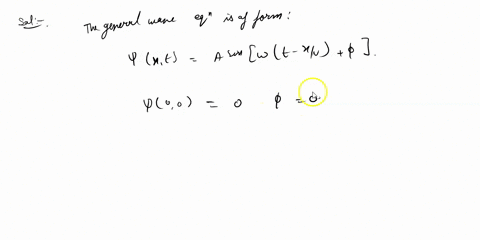 Sol:-
The general wave eqⁿ is of form:
Ψ(x,t) = A sin [ω(t - x/v) + φ].
Ψ(0,0) = 0 φ = 0.